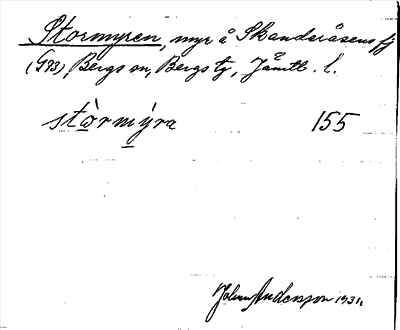 Stormyren, myr å Skanderåsens fj
(G93) Bergs sn, Bergs tg, Jämtl. l.
stòrmýra 155
Johan Andersson 1931.